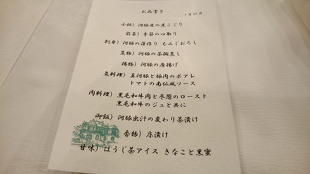 お品書き
小鉢) 河豚皮の煮こごり
前菜) 季節の口取り
刺身) 河豚の薄作り もみじおろし
蒸物) 河豚の茶碗蒸し
揚物) 河豚の唐揚げ
魚料理) 真河豚と帆立のポアレ
トマトの南仏風ソース
肉料理) 黒毛和牛肉と冬葱のロースト
黒毛和牛のジュと共に
御飯) 河豚出汁の変わり茶漬け
香物) 京漬け
甘味) ほうじ茶アイス きなこと黒蜜